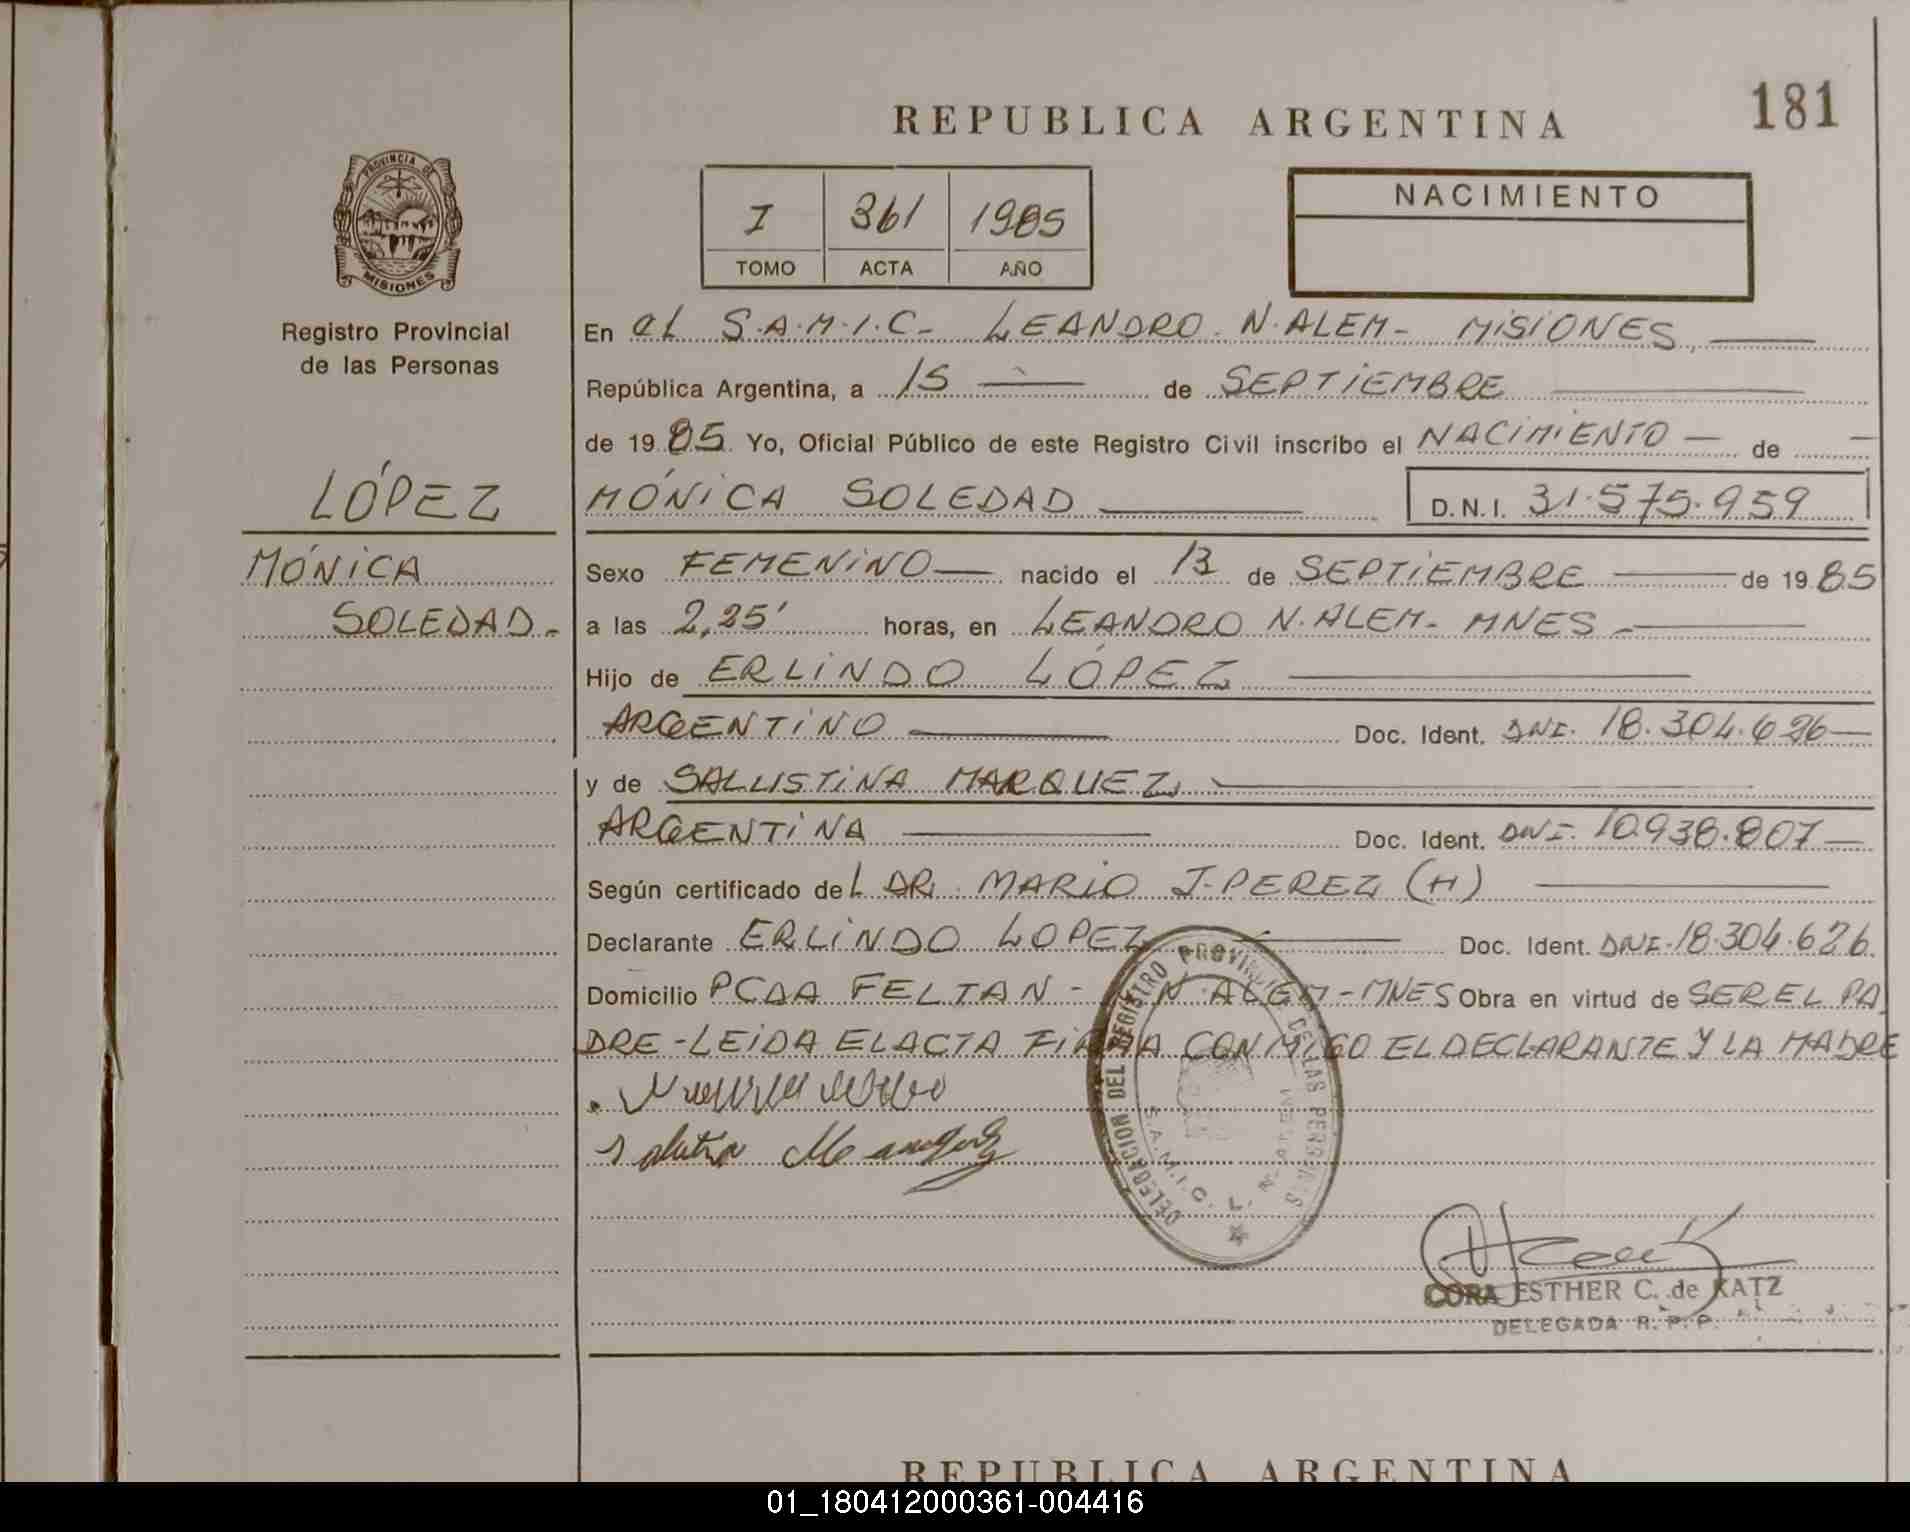 181
REPUBLICA ARGENTINA
PROVINCIA DE
MISIONES
Registro Provincial
de las Personas
I 361 1985
TOMO ACTA AÑO
NACIMIENTO
LÓPEZ
MÓNICA
SOLEDAD.-
En el S.A.M.I.C- LEANDRO N. ALEM- MISIONES,
República Argentina, a 15 de SEPTIEMBRE
de 1985. Yo, Oficial Público de este Registro Civil inscribo el NACIMIENTO — de —
MÓNICA SOLEDAD D.N.I. 31.575.959
Sexo FEMENINO — nacido el 13 de SEPTIEMBRE de 1985
a las 2,25' horas, en LEANDRO N. ALEM- MNES -
Hijo de ERLINDO LÓPEZ
ARGENTINO Doc. Ident. DNI. 18.304.626-
y de SALUSTINA MARQUEZ
ARGENTINA Doc. Ident. DNI. 10.938.807-
Según certificado del DR. MARIO J. PEREZ (H)
Declarante ERLINDO LOPEZ Doc. Ident. DNI. 18.304.626.
Domicilio PCDA FELTAN - L. N. ALEM-MNES Obra en virtud de SER EL PA
DRE-LEIDA EL ACTA FIRMA CONMIGO EL DECLARANTE Y LA MADRE
DELEGACION DEL REGISTRO PROVINCIAL DE LAS PERSONAS
S.A.M.I.C. L. N. ALEM
CORA ESTHER C. de KATZ
DELEGADA R. P. P.
REPUBLICA ARGENTINA
01_180412000361-004416